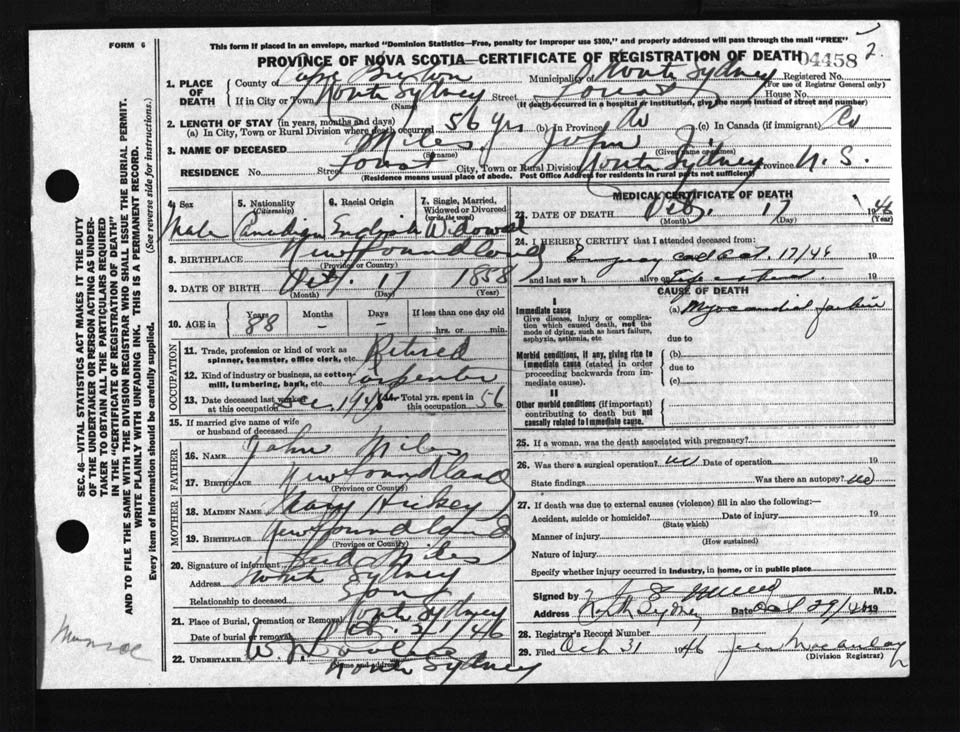 FORM 6
This form if placed in an envelope, marked "Dominion Statistics—Free, penalty for improper use $300," and properly addressed will pass through the mail "FREE"
2
PROVINCE OF NOVA SCOTIA—CERTIFICATE OF REGISTRATION OF DEATH
04458
1. PLACE OF DEATH
County of Cape Breton Municipality of North Sydney Registered No.
(For use of Registrar General only)
If in City or Town North Sydney Street Forest House No.
(Name) (If death occurred in a hospital or institution, give the name instead of street and number)
2. LENGTH OF STAY (in years, months and days)
(a) In City, Town or Rural Division where death occurred 56 yrs (b) In Province (c) In Canada (if immigrant)
3. NAME OF DECEASED Miles, John
(Surname) (Given name or names)
RESIDENCE No. Street Forest City, Town or Rural Division North Sydney Province N. S.
(Residence means usual place of abode. Post Office Address for residents in rural parts not sufficient)
4. Sex
Male
5. Nationality
(Citizenship)
Canadian
6. Racial Origin
English
7. Single, Married, Widowed or Divorced
(write the word)
Widowed
8. BIRTHPLACE Newfoundland
(Province or Country)
9. DATE OF BIRTH Oct. 17 1858
(Month) (Day) (Year)
10. AGE in
Years
88
Months
-
Days
-
If less than one day old
hrs. or min.
OCCUPATION
11. Trade, profession or kind of work as spinner, teamster, office clerk, etc. Retired
12. Kind of industry or business, as cotton mill, lumbering, bank, etc. Carpenter
13. Date deceased last worked at this occupation
14. Total yrs. spent in this occupation 56
15. If married give name of wife or husband of deceased
FATHER
16. Name John Miles
17. Birthplace Newfoundland
(Province or Country)
MOTHER
18. MAIDEN NAME Mary Hickey
19. BIRTHPLACE Newfoundland
(Province or Country)
20. Signature of informant Miles
Address North Sydney
Relationship to deceased Son
21. Place of Burial, Cremation or Removal North Sydney
Date of burial or removal
22. UNDERTAKER
North Sydney
MEDICAL CERTIFICATE OF DEATH
23. DATE OF DEATH Oct. 17 1946
(Month) (Day) (Year)
24. I HEREBY CERTIFY that I attended deceased from:
call Oct. 17/46 19
and last saw h alive on 19
CAUSE OF DEATH
I
Immediate cause
Give disease, injury or complication which caused death, not the mode of dying, such as heart failure, asphyxia, asthenia, etc
(a) Myocardial failure
due to
Morbid conditions, if any, giving rise to immediate cause (stated in order proceeding backwards from immediate cause).
(b)
due to
(c)
II
Other morbid conditions (if important) contributing to death but not causally related to immediate cause.
25. If a woman, was the death associated with pregnancy?
26. Was there a surgical operation? no Date of operation 19
State findings Was there an autopsy? no
27. If death was due to external causes (violence) fill in also the following:—
Accident, suicide or homicide? Date of injury 19
(State which)
Manner of injury
(How sustained)
Nature of injury
Specify whether injury occurred in industry, in home, or in public place
Signed by M.D.
Address North Sydney Date Oct 29/46 19
28. Registrar's Record Number
29. Filed Oct 31 1946
(Division Registrar)
SEC. 46—VITAL STATISTICS ACT MAKES IT THE DUTY
OF THE UNDERTAKER OR PERSON ACTING AS UNDERTAKER TO OBTAIN ALL THE PARTICULARS REQUIRED
IN THE "CERTIFICATE OF REGISTRATION OF DEATH"
AND TO FILE THE SAME WITH THE DIVISION REGISTRAR WHO SHALL ISSUE THE BURIAL PERMIT.
WRITE PLAINLY WITH UNFADING INK. THIS IS A PERMANENT RECORD.
Every item of information should be carefully supplied. (See reverse side for instructions.)
Munroe